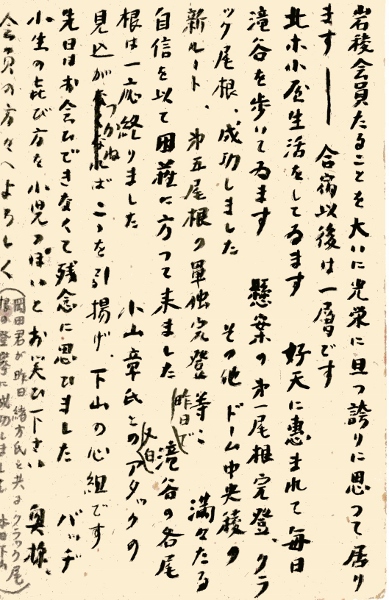 岩稜会員たることを大いに光栄に且つ誇りに思つて居り
ます ── 合宿以後は一層です
北ホ小屋生活をしてゐます 好天に恵まれて毎日
滝谷を歩いてゐます 懸案の第二尾根完登、クラ
ック尾根、成功しました その他 ドーム中央稜の
新ルート、第五尾根の単独完登等に 満々たる
自信を以て因荘に方つて来ました 昨日で 滝谷の各尾
根は一応終りました 小山章氏とのアタックの
見込がつかねば こゝを引揚げ、下山の心組です
先日はお会ひできなくて残念に思ひました バッヂ
小生の喜び方を小児つぽいとお笑ひ下さい 奥様、
会員の方々へよろしく
岡田君が昨日緒方氏と共にクラック尾
根の登攀に成功しました